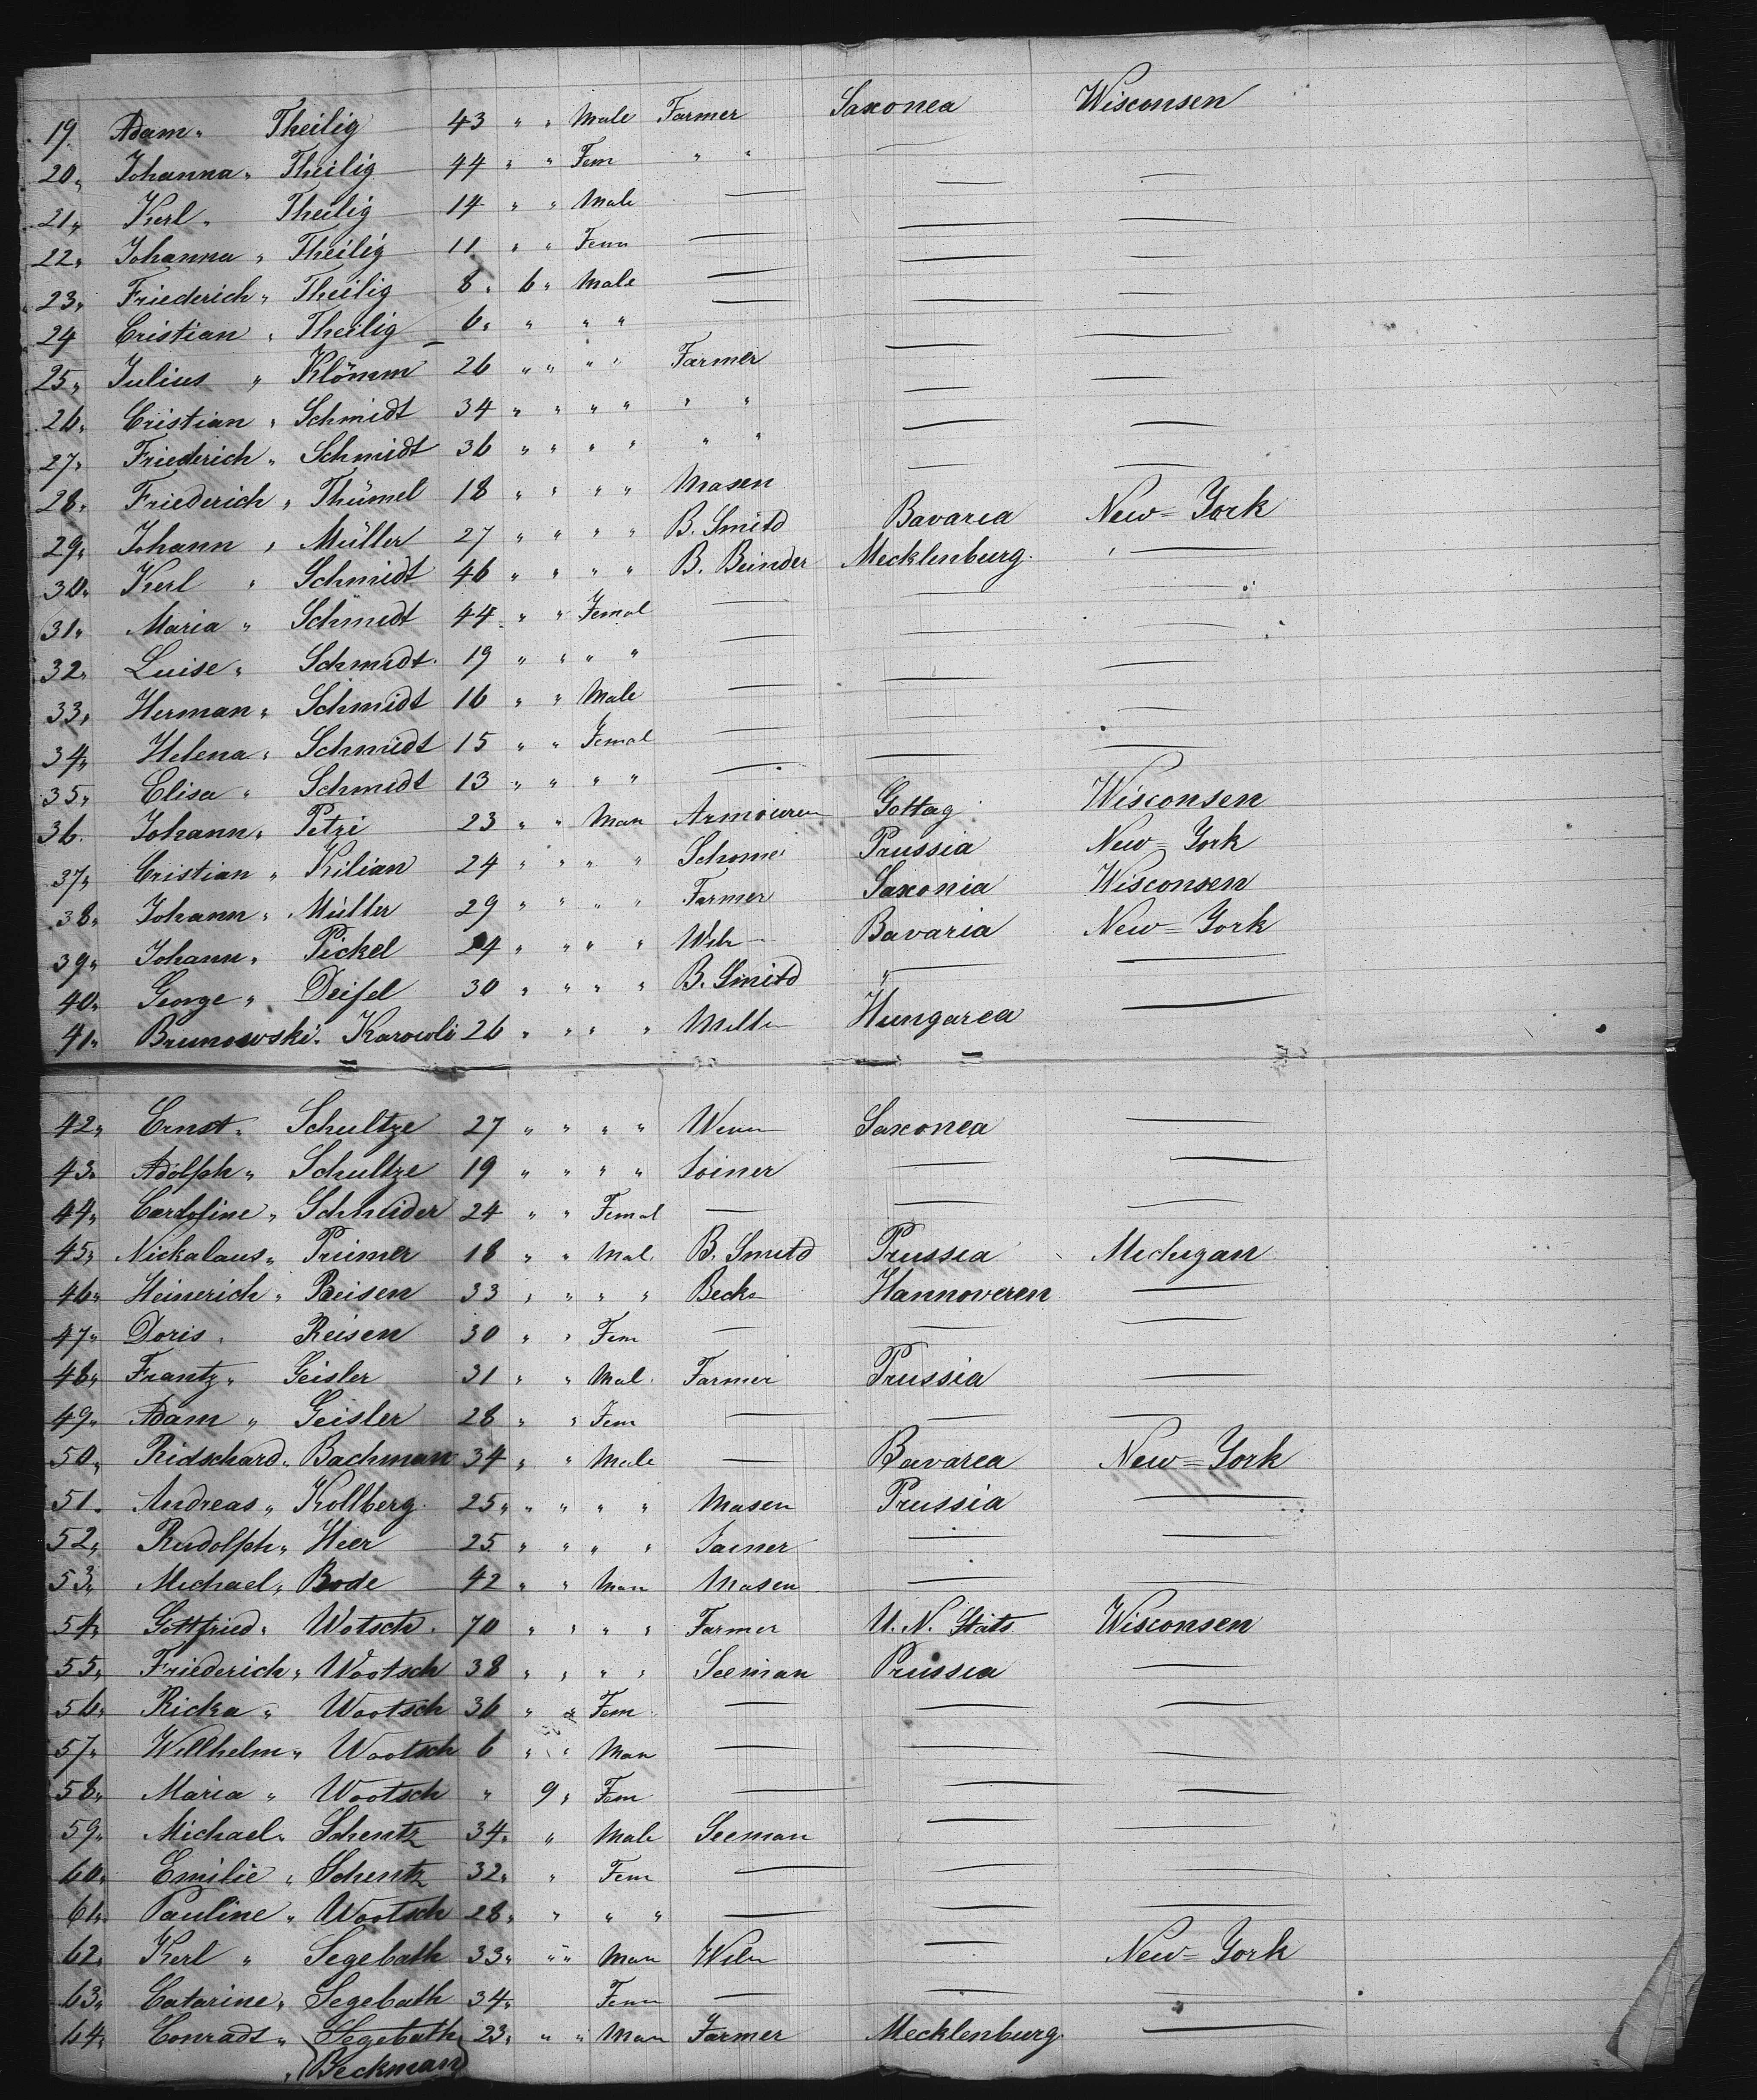 19. Adam " Theilig 43 " " Male Farmer Saxonea Wisconsen
20 " Johanna " Theilig 44 " " Fem " " —
21 " Kerl " Theilig 14 " " Male — — —
22 " Johanna " Theilig 11 " " Fem — — —
23 " Friederich " Theilig 8 " 6 " Male — — —
24 Cristian " Theilig 6 " " " " — — —
25 " Julius " Klömm 26 " " " " Farmer — —
26 " Cristian " Schmidt 34 " " " " " " — —
27 " Friederich " Schmidt 36 " " " " " " — —
28 " Friederich " Thümel 18 " " " " Masen — —
29 " Johann " Müller 27 " " " " B. Smitd Bavarea New = York
30 " Kerl " Schmidt 46 " " " " B. Beinder Mecklenburg. " —
31 " Maria " Schmidt 44 " " Femal — — —
32 " Luise " Schmidt 19 " " " " — — —
33 " Herman " Schmidt 16 " " Male — — —
34 " Helena " Schmidt 15 " " Femal — — —
35 " Elisa " Schmidt 13 " " " " — — —
36. Johann " Petzi 23 " " Man Gottag Wisconsen
37 " Cristian " Kilian 24 " " " " Prussia New = York
38 " Johann " Müller 29 " " " " Farmer Saxonia Wisconsen
39 " Johann " Pickel 24 " " " " Bavaria New = York
40 " George " Deifel 30 " " " " B. Smitd " — —
41 " Brunowski " Karowli 26 " " " " Hungarea —
42 " Ernst " Schultze 27 " " " " Saxonea —
43 " Adolph " Schultze 19 " " " " Joiner — —
44 " Schneider 24 " " Femal — — —
45 " Nickalaus " Priemer 18 " " Mal. B. Smitd Prussea Michigan
46 " Heinerich " Reisen 33 " " " " Hannoveren —
47 " Doris " Reisen 30 " " Fem — — —
48 " Frantz " Geisler 31 " " Mal. Farmer Prussia —
49 " Adam " Geisler 28 " " Fem — — —
50 " Ridschard " Bachman 34 " " Male — Bavarea New = York
51. Andreas " Kollberg. 25 " " " " " Masen Prussia —
52 " Rudolph " Heer 25 " " " " Joiner — —
53 " Michael " Bode 42 " " Man Masen — —
54 " Gottfried " Wotsch. 70 " " " " Farmer U. N. Stats Wisconsen
55 " Friederich " Wootsch 38 " " " " Seeman Prussea —
56 " Ricka " Wootsch 36 " " Fem — — —
57 " Willhelm " Wootsch 6 " " Man — — —
58 " Maria " Wootsch " 9 " Fem — — —
59 " Michael " Schentz 34 " " Male Seeman — —
60 " Emilie " Schentz 32 " " Fem — — —
61 " Pauline " Wootsch 28 " " " " — — —
62 " Kerl " Segebath 33 " " " Man — New = York
63 " Catarine " Segebath 34 " Fem — — —
64 " Conradt " (Segebath) 23 " " " Man Farmer Mecklenburg. —
" (Beckman)